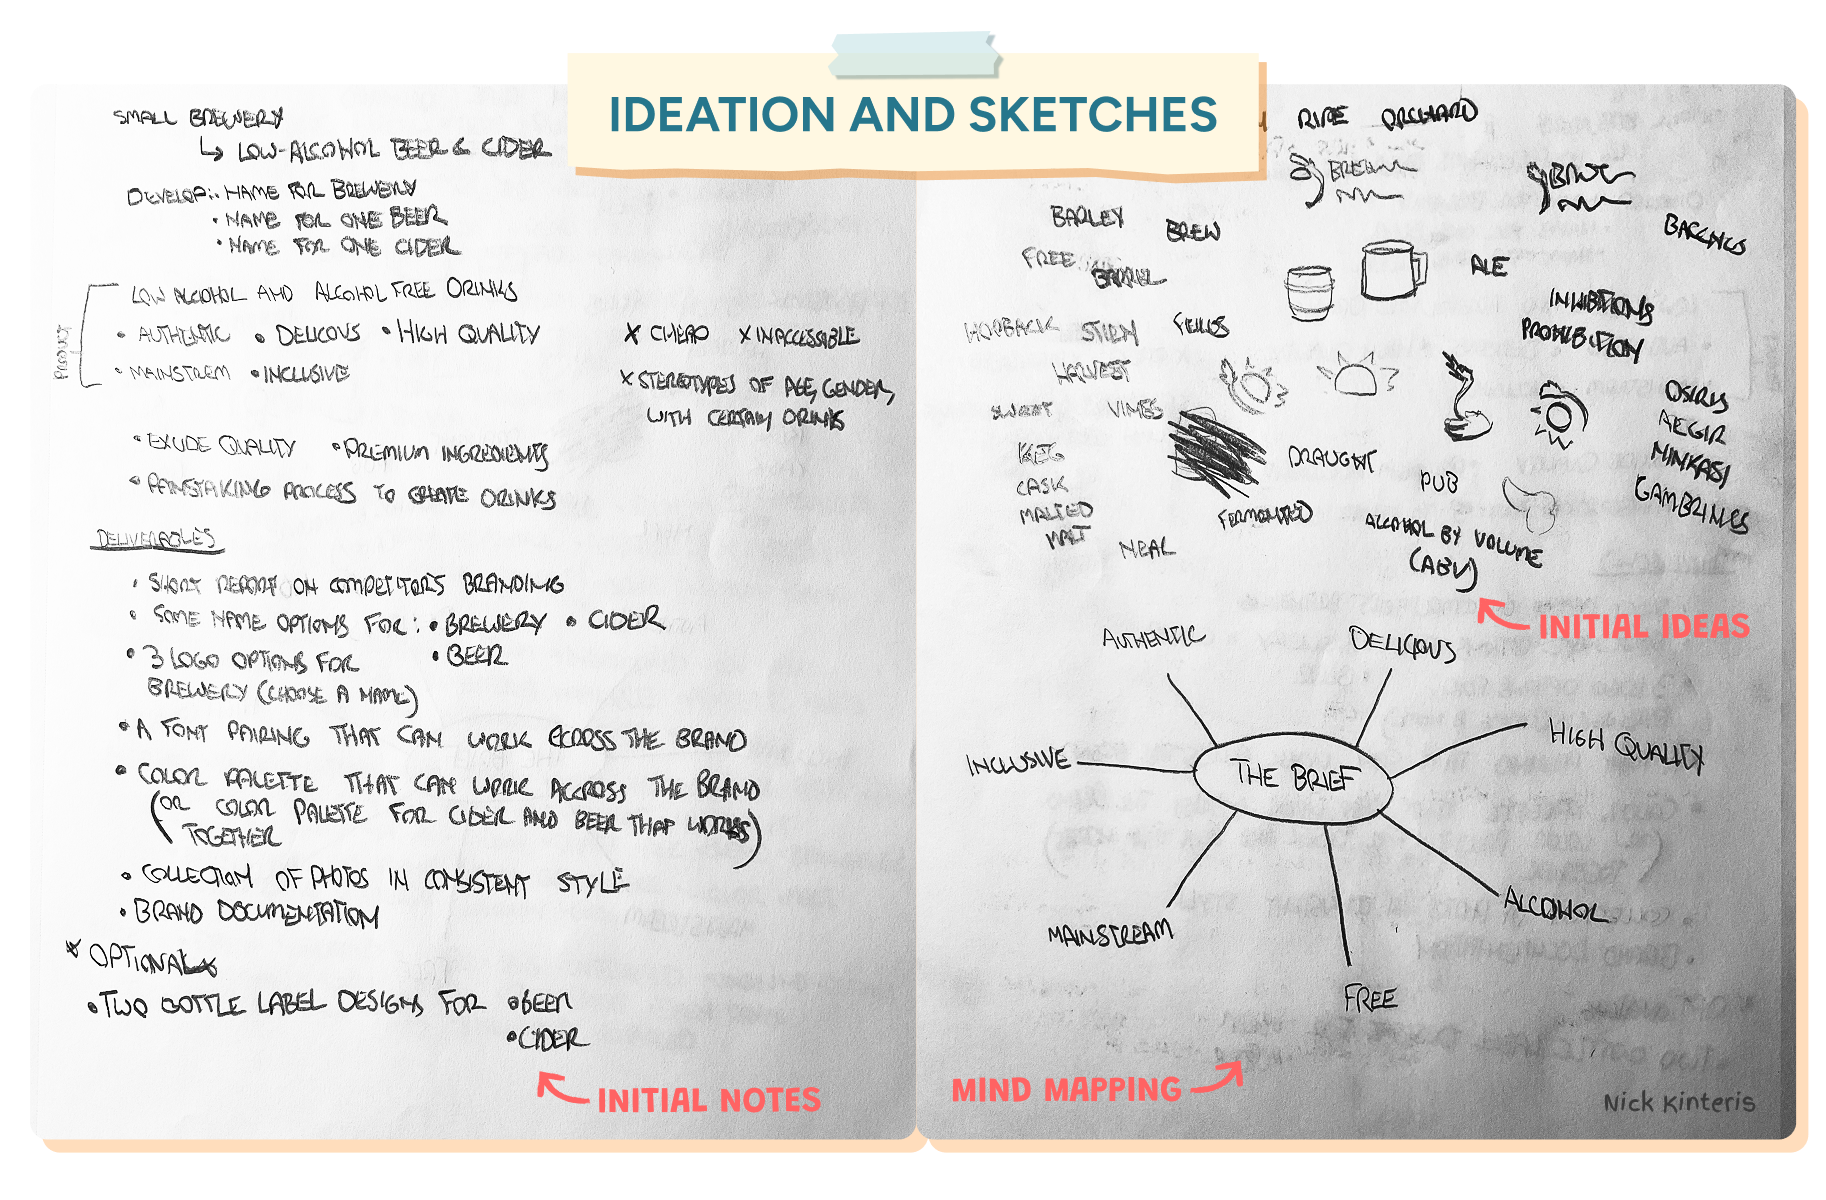 IDEATION AND SKETCHES
SMALL BREWERY
↳ LOW-ALCOHOL BEER & CIDER
DEVELOP: • NAME FOR BREWERY
• NAME FOR ONE BEER
• NAME FOR ONE CIDER
PRODUCT
LOW ALCOHOL AND ALCOHOL FREE DRINKS
• AUTHENTIC • DELICOUS • HIGH QUALITY
• MAINSTREM • INCLUSIVE
X CHEAP X INACCESSABLE
X STEREOTYPES OF AGE, GENDER,
WITH CERTAIN DRINKS
• EXUDE QUALITY • PREMIUM INGREDIENTS
• PAINSTAKING PROCESS TO CREATE DRINKS
DELIVERABLES
• SHORT REPORT ON COMPETITOR'S BRANDING
• SOME NAME OPTIONS FOR: • BREWERY • CIDER
• BEER
• 3 LOGO OPTIONS FOR
BREWERY (CHOOSE A NAME)
• A FONT PAIRING THAT CAN WORK ACROSS THE BRAND
• COLOR PALETTE THAT CAN WORK ACCROSS THE BRAND
(OR COLOR PALETTE FOR CIDER AND BEER THAT WORKS
TOGETHER)
• COLLECTION OF PHOTOS IN CONSISTENT STYLE
• BRAND DOCUMENTATION
* OPTIONAL
• TWO BOTTLE LABEL DESIGNS FOR • BEER
• CIDER
INITIAL NOTES
RIPE ORCHARD
BREW
BARLEY BREW
FREE BARREL
ALE
BACCHUS
INHIBITIONS
PROHIBITION
HOPBACK STEM FIELDS
HARVEST
SWEET VINES
KEG
CASK
MALTED
MALT
NEAL
DRAUGHT
FERMENTED
PUB
ALCOHOL BY VOLUME
(ABV)
OSIRIS
AEGIR
NINKASI
GAMBRINUS
INITIAL IDEAS
AUTHENTIC DELICIOUS
HIGH QUALITY
INCLUSIVE THE BRIEF
ALCOHOL
MAINSTREAM
FREE
MIND MAPPING
Nick Kinteris